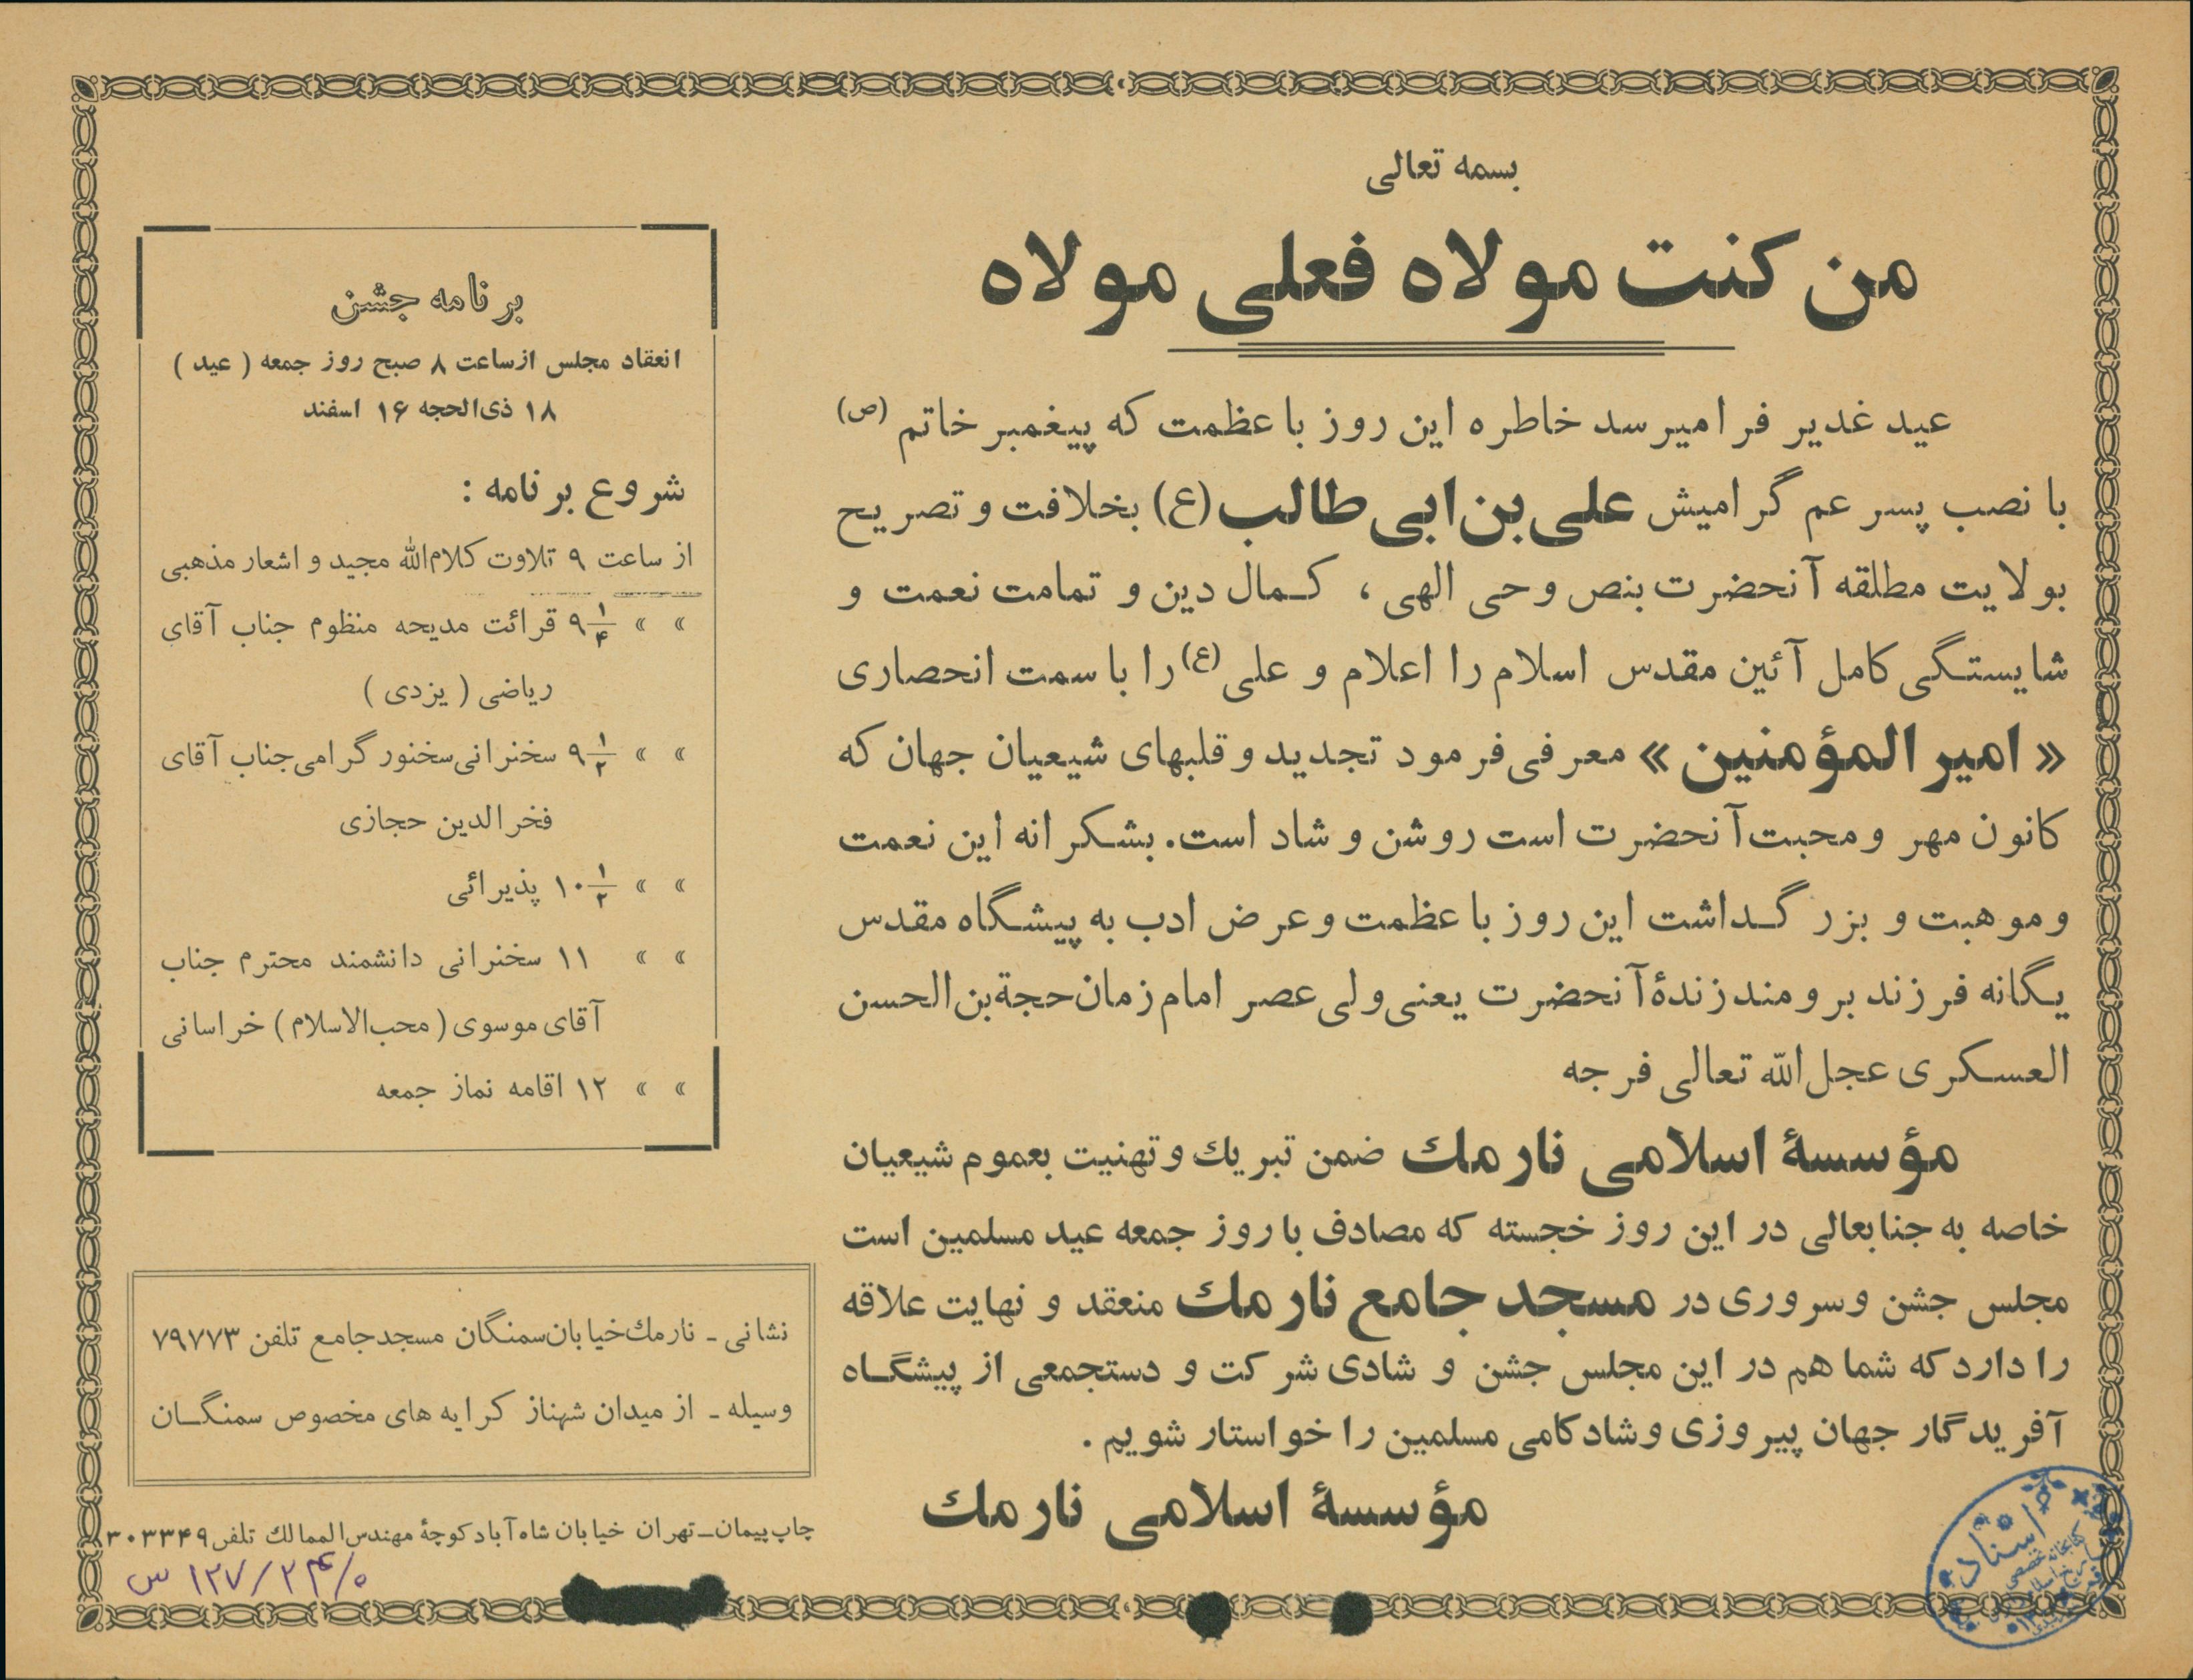 بسمه تعالی
من کنت مولاه فعلی مولاه
عید غدیر فرامیرسد خاطره این روز باعظمت که پیغمبر خاتم (ص)
با نصب پسر عم گرامیش علی بن ابی طالب (ع) بخلافت و تصریح
بولایت مطلقه آنحضرت بنص وحی الهی ، کمال دین و تمامت نعمت و
شایستگی کامل آئین مقدس اسلام را اعلام و علی (ع) را با سمت انحصاری
« امیر المؤمنین » معرفی فرمود تجدید و قلبهای شیعیان جهان که
کانون مهر و محبت آنحضرت است روشن و شاد است. بشکرانه این نعمت
و موهبت و بزرگداشت این روز باعظمت و عرض ادب به پیشگاه مقدس
یگانه فرزند برومند زندهٔ آنحضرت یعنی ولی عصر امام زمان حجة بن الحسن
العسکری عجل الله تعالی فرجه
مؤسسهٔ اسلامی نارمك ضمن تبریك و تهنیت بعموم شیعیان
خاصه به جنابعالی در این روز خجسته که مصادف با روز جمعه عید مسلمین است
مجلس جشن و سروری در مسجد جامع نارمك منعقد و نهایت علاقه
را دارد که شما هم در این مجلس جشن و شادی شرکت و دستجمعی از پیشگاه
آفریدگار جهان پیروزی و شادکامی مسلمین را خواستار شویم .
مؤسسهٔ اسلامی نارمك
برنامه جشن
انعقاد مجلس از ساعت ۸ صبح روز جمعه ( عید )
۱۸ ذی‌الحجه ۱۶ اسفند
شروع برنامه :
از ساعت ۹ تلاوت کلام‌الله مجید و اشعار مذهبی
» » ۹ ۱/۴ قرائت مدیحه منظوم جناب آقای
ریاضی ( یزدی )
» » ۹ ۱/۲ سخنرانی سخنور گرامی جناب آقای
فخرالدین حجازی
» » ۱۰ ۱/۲ پذیرائی
» » ۱۱ سخنرانی دانشمند محترم جناب
آقای موسوی ( محب‌الاسلام ) خراسانی
» » ۱۲ اقامه نماز جمعه
نشانی ـ نارمك خیابان سمنگان مسجد جامع تلفن ۷۹۷۷۳
وسیله ـ از میدان شهناز کرایه های مخصوص سمنگان
چاپ پیمان ـ تهران خیابان شاه آباد کوچهٔ مهندس الممالك تلفن ۳۰۳۳۴۹
اسناد